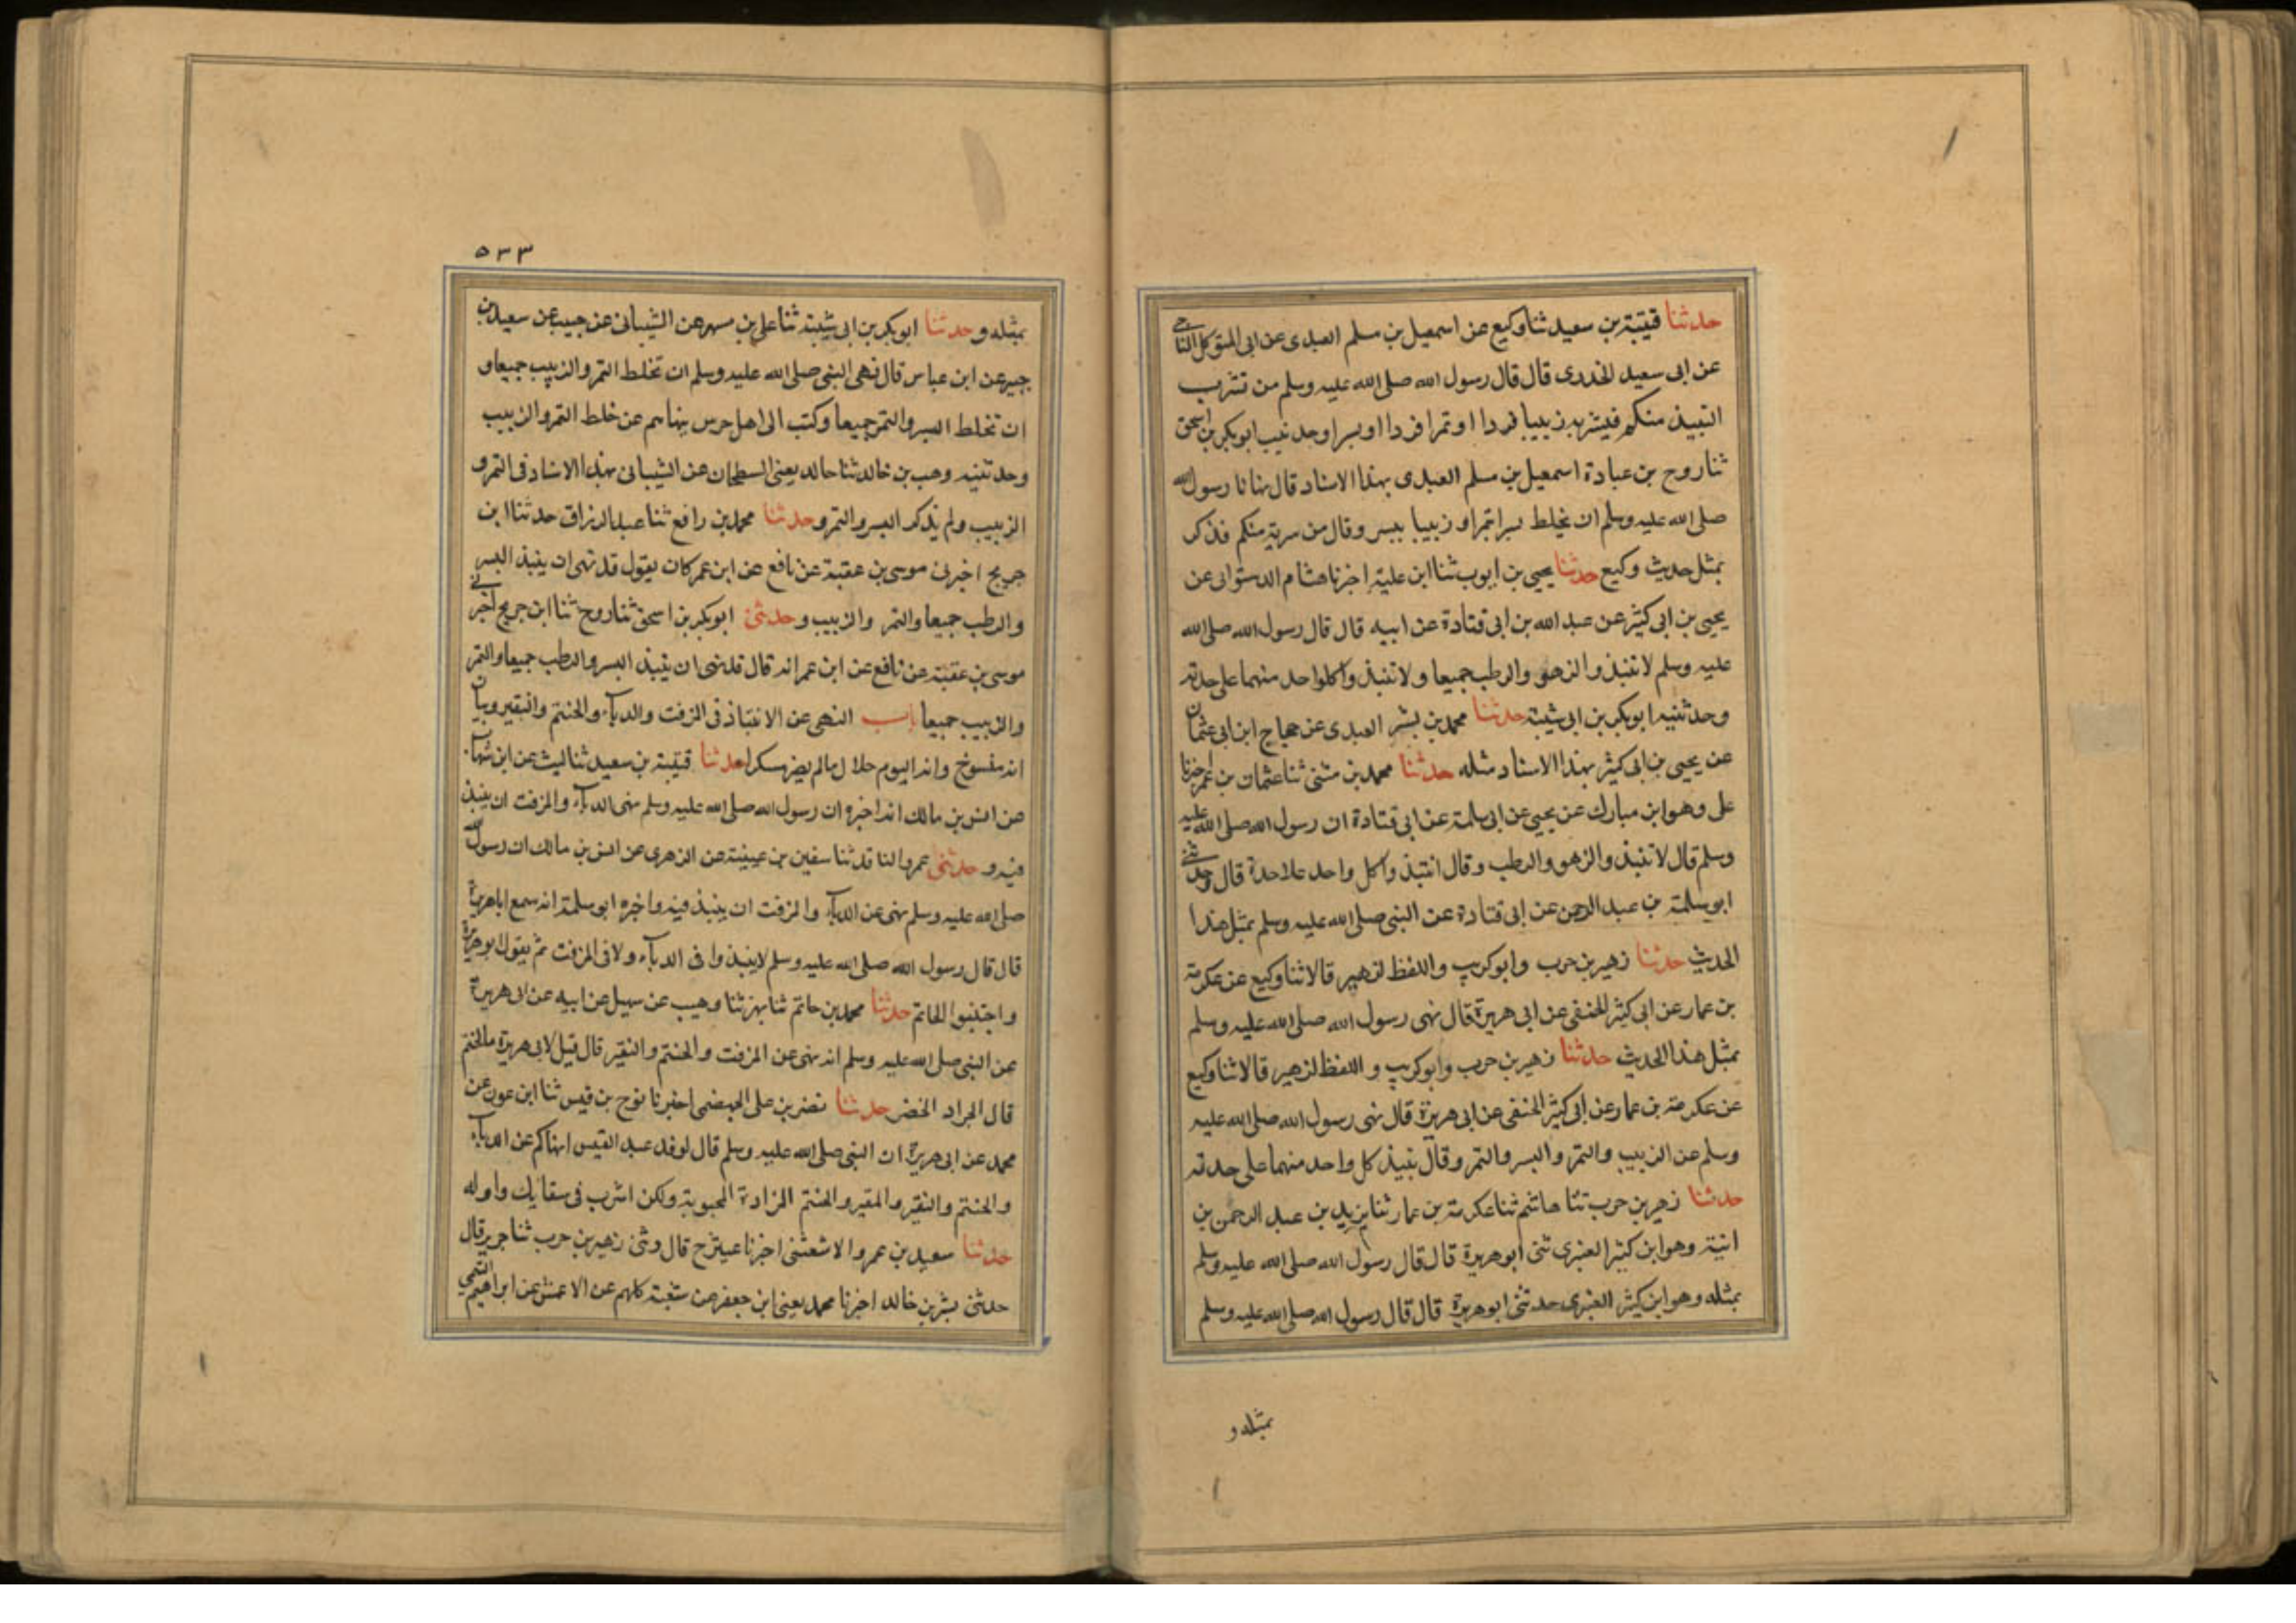 حدثنا قتيبة بن سعيد ثنا وكيع عن اسمعيل بن مسلم العبدى عن ابى المتوكل الناجى
عن ابى سعيد الخدرى قال قال رسول الله صلى الله عليه وسلم من تشرب
النبيذ منكم فيشربه زبيبا فردا او تمرا فردا او بسرا وحدثنيه ابوبكر بن اسحق
ثنا روح بن عبادة اسمعيل بن مسلم العبدى بهذا الاسناد قال نهانا رسول الله
صلى الله عليه وسلم ان نخلط بسرا بتمر او زبيبا ببسر وقال من شربه منكم فذكر
بمثل حديث وكيع حدثنا يحيى بن ايوب ثنا ابن علية اخبرنا هشام الدستوائى عن
يحيى بن ابى كثير عن عبد الله بن ابى قتادة عن ابيه قال قال رسول الله صلى الله
عليه وسلم لا تنبذوا الزهو والرطب جميعا ولا تنبذوا كلواحد منهما على حدته
وحدثنيه ابوبكر بن ابى شيبة حدثنا محمد بن بشر العبدى عن حجاج ابن ابى عثمان
عن يحيى بن ابى كثير بهذا الاسناد مثله حدثنا محمد بن مثنى ثنا عثمان بن عمر اخبرنا
على وهو ابن مبارك عن يحيى عن ابى سلمة عن ابى قتادة ان رسول الله صلى الله عليه
وسلم قال لا تنبذوا الزهو والرطب وقال انتبذوا كل واحد علاحدة قال وحدثنى
ابو سلمة بن عبد الرحمن عن ابى قتادة عن النبى صلى الله عليه وسلم بمثل هذا
الحديث حدثنا زهير بن حرب وابوكريب واللفظ لزهير قالا ثنا وكيع عن عكرمة
بن عمار عن ابى كثير الحنفى عن ابى هريرة قال نهى رسول الله صلى الله عليه وسلم
بمثل هذا الحديث حدثنا زهير بن حرب وابوكريب واللفظ لزهير قالا ثنا وكيع
عن عكرمة بن عمار عن ابى كثير الحنفى عن ابى هريرة قال نهى رسول الله صلى الله عليه
وسلم عن الزبيب والتمر والبسر والتمر وقال ينبذ كل واحد منهما على حدته
حدثنا زهير بن حرب ثنا هاشم ثنا عكرمة بن عمار ثنا يزيد بن عبد الرحمن بن
اذينة وهو ابن كثير العنبرى ثنى ابو هريرة قال قال رسول الله صلى الله عليه وسلم
بمثله وهو ابن كثير العنبرى حدثنى ابو هريرة قال قال رسول الله صلى الله عليه وسلم
بمثله و
٥٣٣
بمثله وحدثنا ابوبكر بن ابى شيبة ثنا على بن مسهر عن الشيبانى عن حبيب عن سعيد بن
جبير عن ابن عباس قال نهى النبى صلى الله عليه وسلم ان تخلط التمر والزبيب جميعا و
ان تخلط البسر والتمر جميعا وكتب الى اهل جرس ينهاهم عن خلط التمر والزبيب
وحدثنيه وهب بن خالد ثنا خالد يعنى السطحان عن الشيبانى بهذا الاسناد فى التمر و
الزبيب ولم يذكر البسر والتمر وحدثنا محمد بن رافع ثنا عبد الرزاق حدثنا ابن
جريج اخبرنى موسى بن عقبة عن نافع عن ابن عمر كان يقول قد نهى ان ينبذ البسر
والرطب جميعا والتمر والزبيب وحدثنى ابوبكر بن اسحق ثنا روح ثنا ابن جريج اخبرنى
موسى بن عقبة عن نافع عن ابن عمر انه قال قد نهى ان ينبذ البسر والرطب جميعا والتمر
والزبيب جميعا باب النهى عن الانتباذ فى المزفت والدباء والحنتم والنقير وبيان
انه منسوخ وانه اليوم حلال مالم يصر مسكرا حدثنا قتيبة بن سعيد ثنا ليث عن ابن شهاب
عن انس بن مالك انه اخبره ان رسول الله صلى الله عليه وسلم نهى الدباء والمزفت ان ينبذ
فيه وحدثنى عمرو الناقد ثنا سفين بن عيينة عن الزهرى عن انس بن مالك ان رسول الله
صلى الله عليه وسلم نهى عن الدباء والمزفت ان ينبذ فيه واخبره ابو سلمة انه سمع اباهريرة
قال قال رسول الله صلى الله عليه وسلم لا ينبذوا فى الدباء ولا فى المزفت ثم يقول ابو هريرة
واجتنبوا الحاتم حدثنا محمد بن حاتم ثنا بهز ثنا وهيب عن سهيل عن ابيه عن ابى هريرة
عن النبى صلى الله عليه وسلم انه نهى عن المزفت والحنتم والنقير قال قيل لابى هريرة ما الحنتم
قال الجرار الخضر حدثنا نصر بن على الجهضمى اخبرنا نوح بن قيس ثنا ابن عون عن
محمد عن ابى هريرة ان النبى صلى الله عليه وسلم قال لوفد عبد القيس انهاكم عن الدباء
والحنتم والنقير والمقير والحنتم المزادة المجبوبة ولكن اشرب فى سقائك واوله
حدثنا سعيد بن عمرو الاشعثى اخبرنا عبثر ح قال وثنى زهير بن حرب ثنا جرير قال
حدثنى بشر بن خالد اخبرنا محمد يعنى ابن جعفر عن شعبة كلهم عن الاعمش عن ابراهيم التيمى